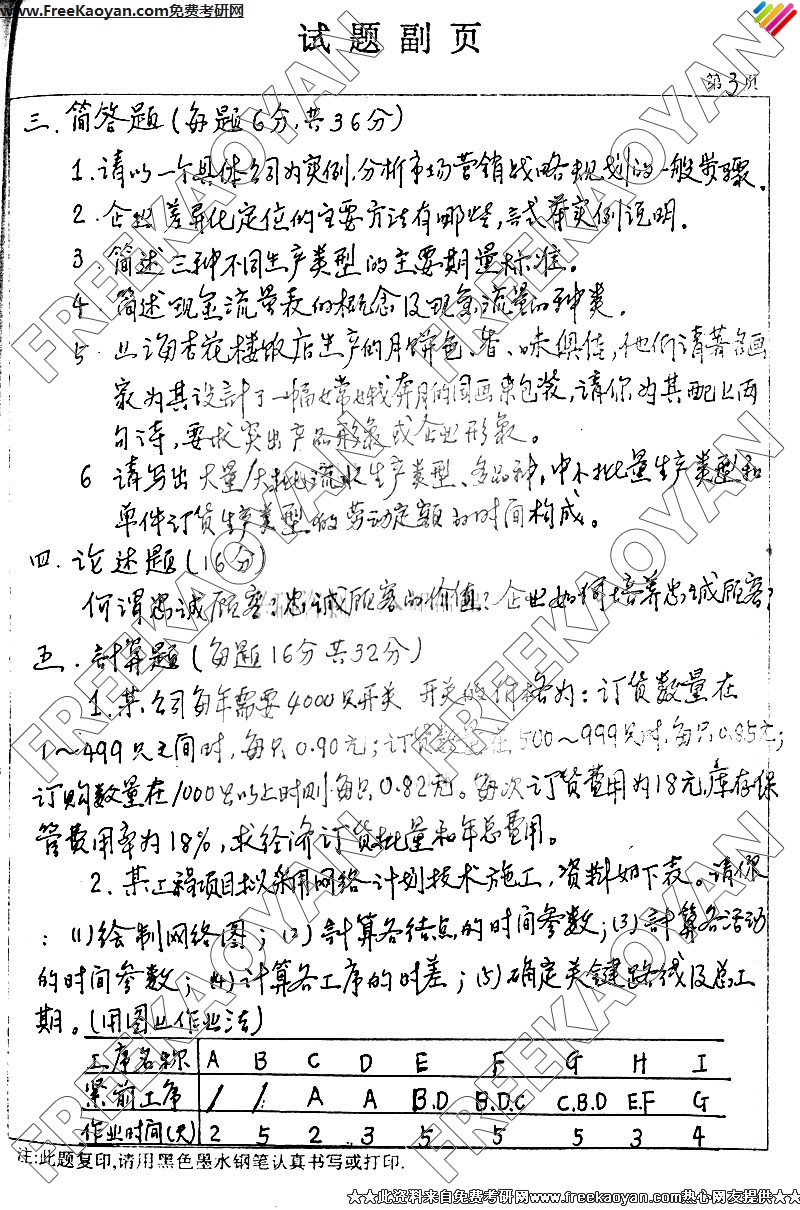 www.FreeKaoyan.com免费考研网
试题副页
第3页
三.简答题(每题6分,共36分)
1.请以一个具体公司为实例,分析市场营销战略规划的一般步骤.
2.企业差异化定位的主要方法有哪些,试举实例说明.
3 简述三种不同生产类型的主要期量标准。
4.简述现金流量表的概念及现金流量的种类.
5.上海杏花楼饭店生产的月饼色、香、味俱佳,他们请著名画
家为其设计了一幅嫦娥奔月的国画来包装,请你为其配上两
句诗,要求突出产品形象或企业形象。
6 请写出大量/大批流水生产类型、多品种,中小批量生产类型和
单件订货生产类型的劳动定额的时间构成。
四.论述题(16分)
何谓忠诚顾客?忠诚顾客的价值?企业如何培养忠诚顾客?
五.计算题(每题16分共32分)
1.某公司每年需要4000只开关 开关的价格为:订货数量在
1~499只之间时,每只0.90元;订货数量在500~999只时,每只0.85元;
订购数量在1000只以上时则每只0.82元。每次订货费用为18元,库存保
管费用率为18%,求经济订货批量和年总费用。
2.某工程项目拟采用网络计划技术施工,资料如下表。请你
:(1)绘制网络图;(2)计算各结点的时间参数;(3)计算各活动
的时间参数;(4)计算各工序的时差;(5)确定关键路线及总工
期。(用图上作业法)
工序名称 A B C D E F G H I
紧前工序 / / A A B.D B.D.C C.B.D E.F G
作业时间(天) 2 5 2 3 5 5 5 3 4
注:此题复印,请用黑色墨水钢笔认真书写或打印.
★★此资料来自免费考研网www.freekaoyan.com热心网友提供★★
FREEKAOYAN
FREEKAOYAN
FREEKAOYAN
FREEKAOYAN
FREEKAOYAN
FREEKAOYAN